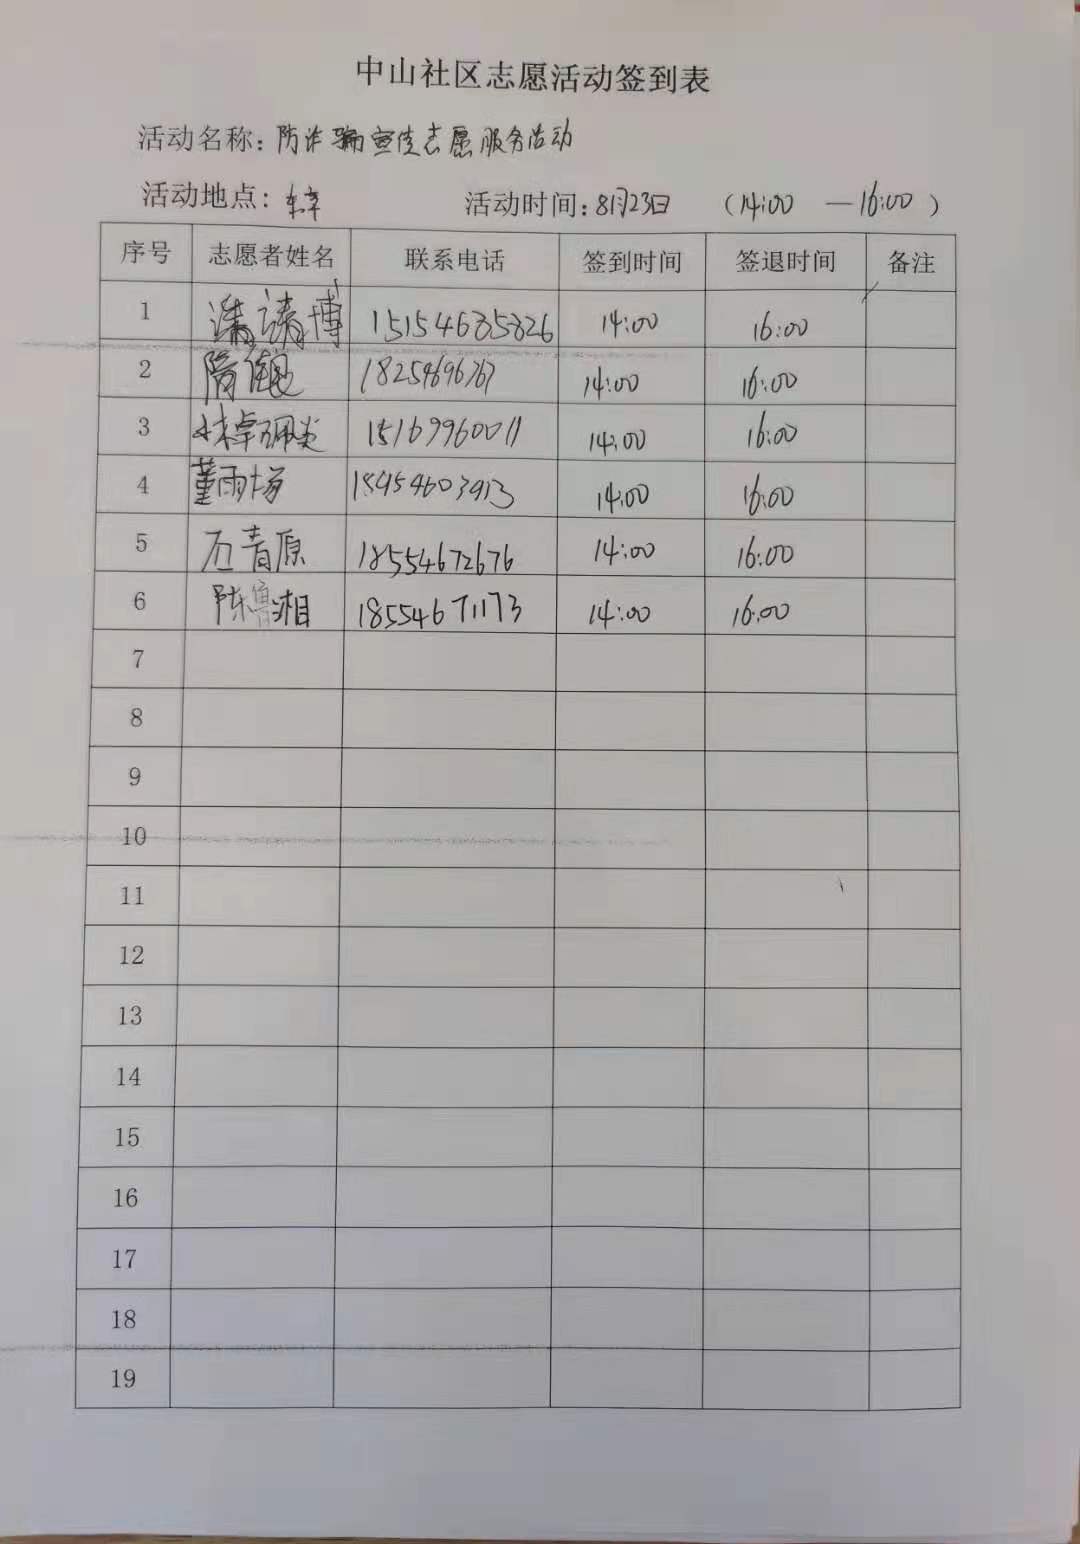 中山社区志愿活动签到表
活动名称：防诈骗宣传志愿服务活动
活动地点：东辛 活动时间：8月23日 （14:00 —16:00）
序号 志愿者姓名 联系电话 签到时间 签退时间 备注
1 博 15154685826 14:00 16:00
2 隋 18254696767 14:00 16:00
3 15169960011 14:00 16:00
4 董雨梅 14:00 16:00
5 石青原 18554672676 14:00 16:00
6 陈鲁湘 18554671173 14:00 16:00
7
8
9
10
11
12
13
14
15
16
17
18
19